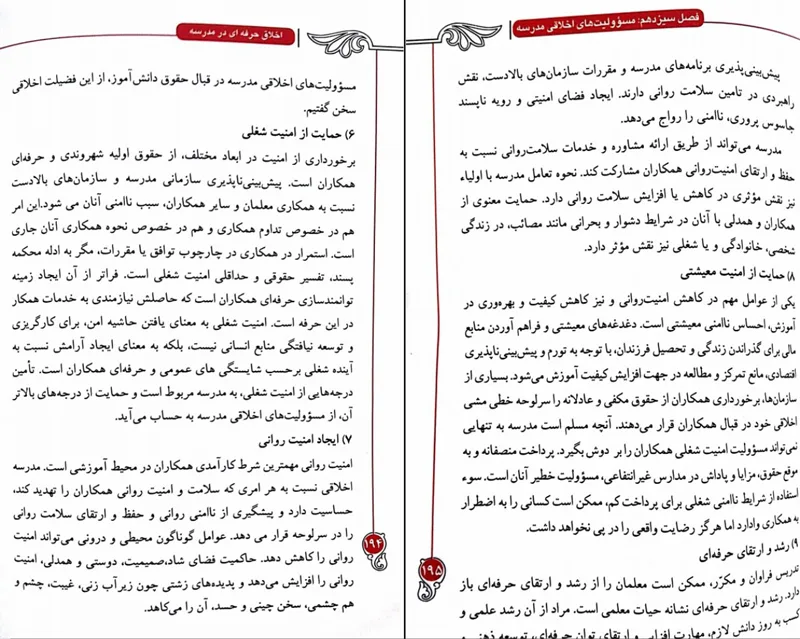 اخلاق حرفه ای در مدرسه
مسؤولیت‌های اخلاقی مدرسه در قبال حقوق دانش‌آموز، از این فضیلت اخلاقی
سخن گفتیم.
۶) حمایت از امنیت شغلی
برخورداری از امنیت در ابعاد مختلف، از حقوق اولیه شهروندی و حرفه‌ای
همکاران است. پیش‌بینی‌ناپذیری سازمانی مدرسه و سازمان‌های بالادست
نسبت به همکاری معلمان و سایر همکاران، سبب ناامنی آنان می شود.این امر
هم در خصوص تداوم همکاری و هم در خصوص نحوه همکاری آنان جاری
است. استمرار در همکاری در چارچوب توافق یا مقررات، مگر به ادله محکمه
پسند، تفسیر حقوقی و حداقلی امنیت شغلی است. فراتر از آن ایجاد زمینه
توانمندسازی حرفه‌ای همکاران است که حاصلش نیازمندی به خدمات همکار
در این حرفه است. امنیت شغلی به معنای یافتن حاشیه امن، برای کارگریزی
و توسعه نیافتگی منابع انسانی نیست، بلکه به معنای ایجاد آرامش نسبت به
آینده شغلی برحسب شایستگی های عمومی و حرفه‌ای همکاران است. تأمین
درجه‌هایی از امنیت شغلی، به مدرسه مربوط است و حمایت از درجه‌های بالاتر
آن، از مسؤولیت‌های اخلاقی مدرسه به حساب می‌آید.
۷) ایجاد امنیت روانی
امنیت روانی مهمترین شرط کارآمدی همکاران در محیط آموزشی است. مدرسه
اخلاقی نسبت به هر امری که سلامت و امنیت روانی همکاران را تهدید کند،
حساسیت دارد و پیشگیری از ناامنی روانی و حفظ و ارتقای سلامت روانی
را در سرلوحه قرار می دهد. عوامل گوناگون محیطی و درونی می‌تواند امنیت
روانی را کاهش دهد. حاکمیت فضای شاد،صمیمیت، دوستی و همدلی، امنیت
روانی را افزایش می‌دهد و پدیده‌های زشتی چون زیرآب زنی، غیبت، چشم و
هم چشمی، سخن چینی و حسد، آن را می‌کاهد.
۱۹۴
فصل سیزدهم: مسؤولیت‌های اخلاقی مدرسه
پیش‌بینی‌پذیری برنامه‌های مدرسه و مقررات سازمان‌های بالادست، نقش
راهبردی در تامین سلامت روانی دارند. ایجاد فضای امنیتی و رویه ناپسند
جاسوس پروری، ناامنی را رواج می‌دهد.
مدرسه می‌تواند از طریق ارائه مشاوره و خدمات سلامت‌روانی نسبت به
حفظ و ارتقای امنیت‌روانی همکاران مشارکت کند. نحوه تعامل مدرسه با اولیاء
نیز نقش مؤثری در کاهش یا افزایش سلامت روانی دارد. حمایت معنوی از
همکاران و همدلی با آنان در شرایط دشوار و بحرانی مانند مصائب، در زندگی
شخصی، خانوادگی و یا شغلی نیز نقش مؤثر دارد.
۸) حمایت از امنیت معیشتی
یکی از عوامل مهم در کاهش امنیت‌روانی و نیز کاهش کیفیت و بهره‌وری در
آموزش، احساس ناامنی معیشتی است. دغدغه‌های معیشتی و فراهم آوردن منابع
مالی برای گذراندن زندگی و تحصیل فرزندان، با توجه به تورم و پیش‌بینی‌ناپذیری
اقتصادی، مانع تمرکز و مطالعه در جهت افزایش کیفیت آموزش می‌شود. بسیاری از
سازمان‌ها، برخورداری همکاران از حقوق مکفی و عادلانه را سرلوحه خطی مشی
اخلاقی خود در قبال همکاران قرار می‌دهند. آنچه مسلم است مدرسه به تنهایی
نمی‌تواند مسؤولیت امنیت شغلی همکاران را بر دوش بگیرد. پرداخت منصفانه و به
موقع حقوق، مزایا و پاداش در مدارس غیرانتفاعی، مسؤولیت خطیر آنان است. سوء
استفاده از شرایط ناامنی شغلی برای پرداخت کم، ممکن است کسانی را به اضطرار
به همکاری وادارد اما هرگز رضایت واقعی را در پی نخواهد داشت.
۹) رشد و ارتقای حرفه‌ای
تدریس فراوان و مکرّر، ممکن است معلمان را از رشد و ارتقای حرفه‌ای باز
دارد. رشد و ارتقای حرفه‌ای نشانه حیات معلمی است. مراد از آن رشد علمی و
کسب به روز دانش لازم، مهارت افزایی و ارتقای توان حرفه‌ای، توسعه ذهنی و
۱۹۵